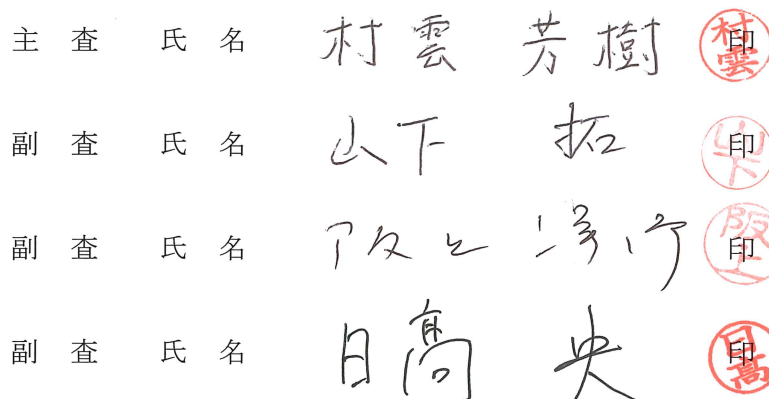 主査 氏名 村雲 芳樹 印 村雲
副査 氏名 山下 拓 印 山下
副査 氏名 阪上 洋行 印 阪上
副査 氏名 日髙 央 印 日髙